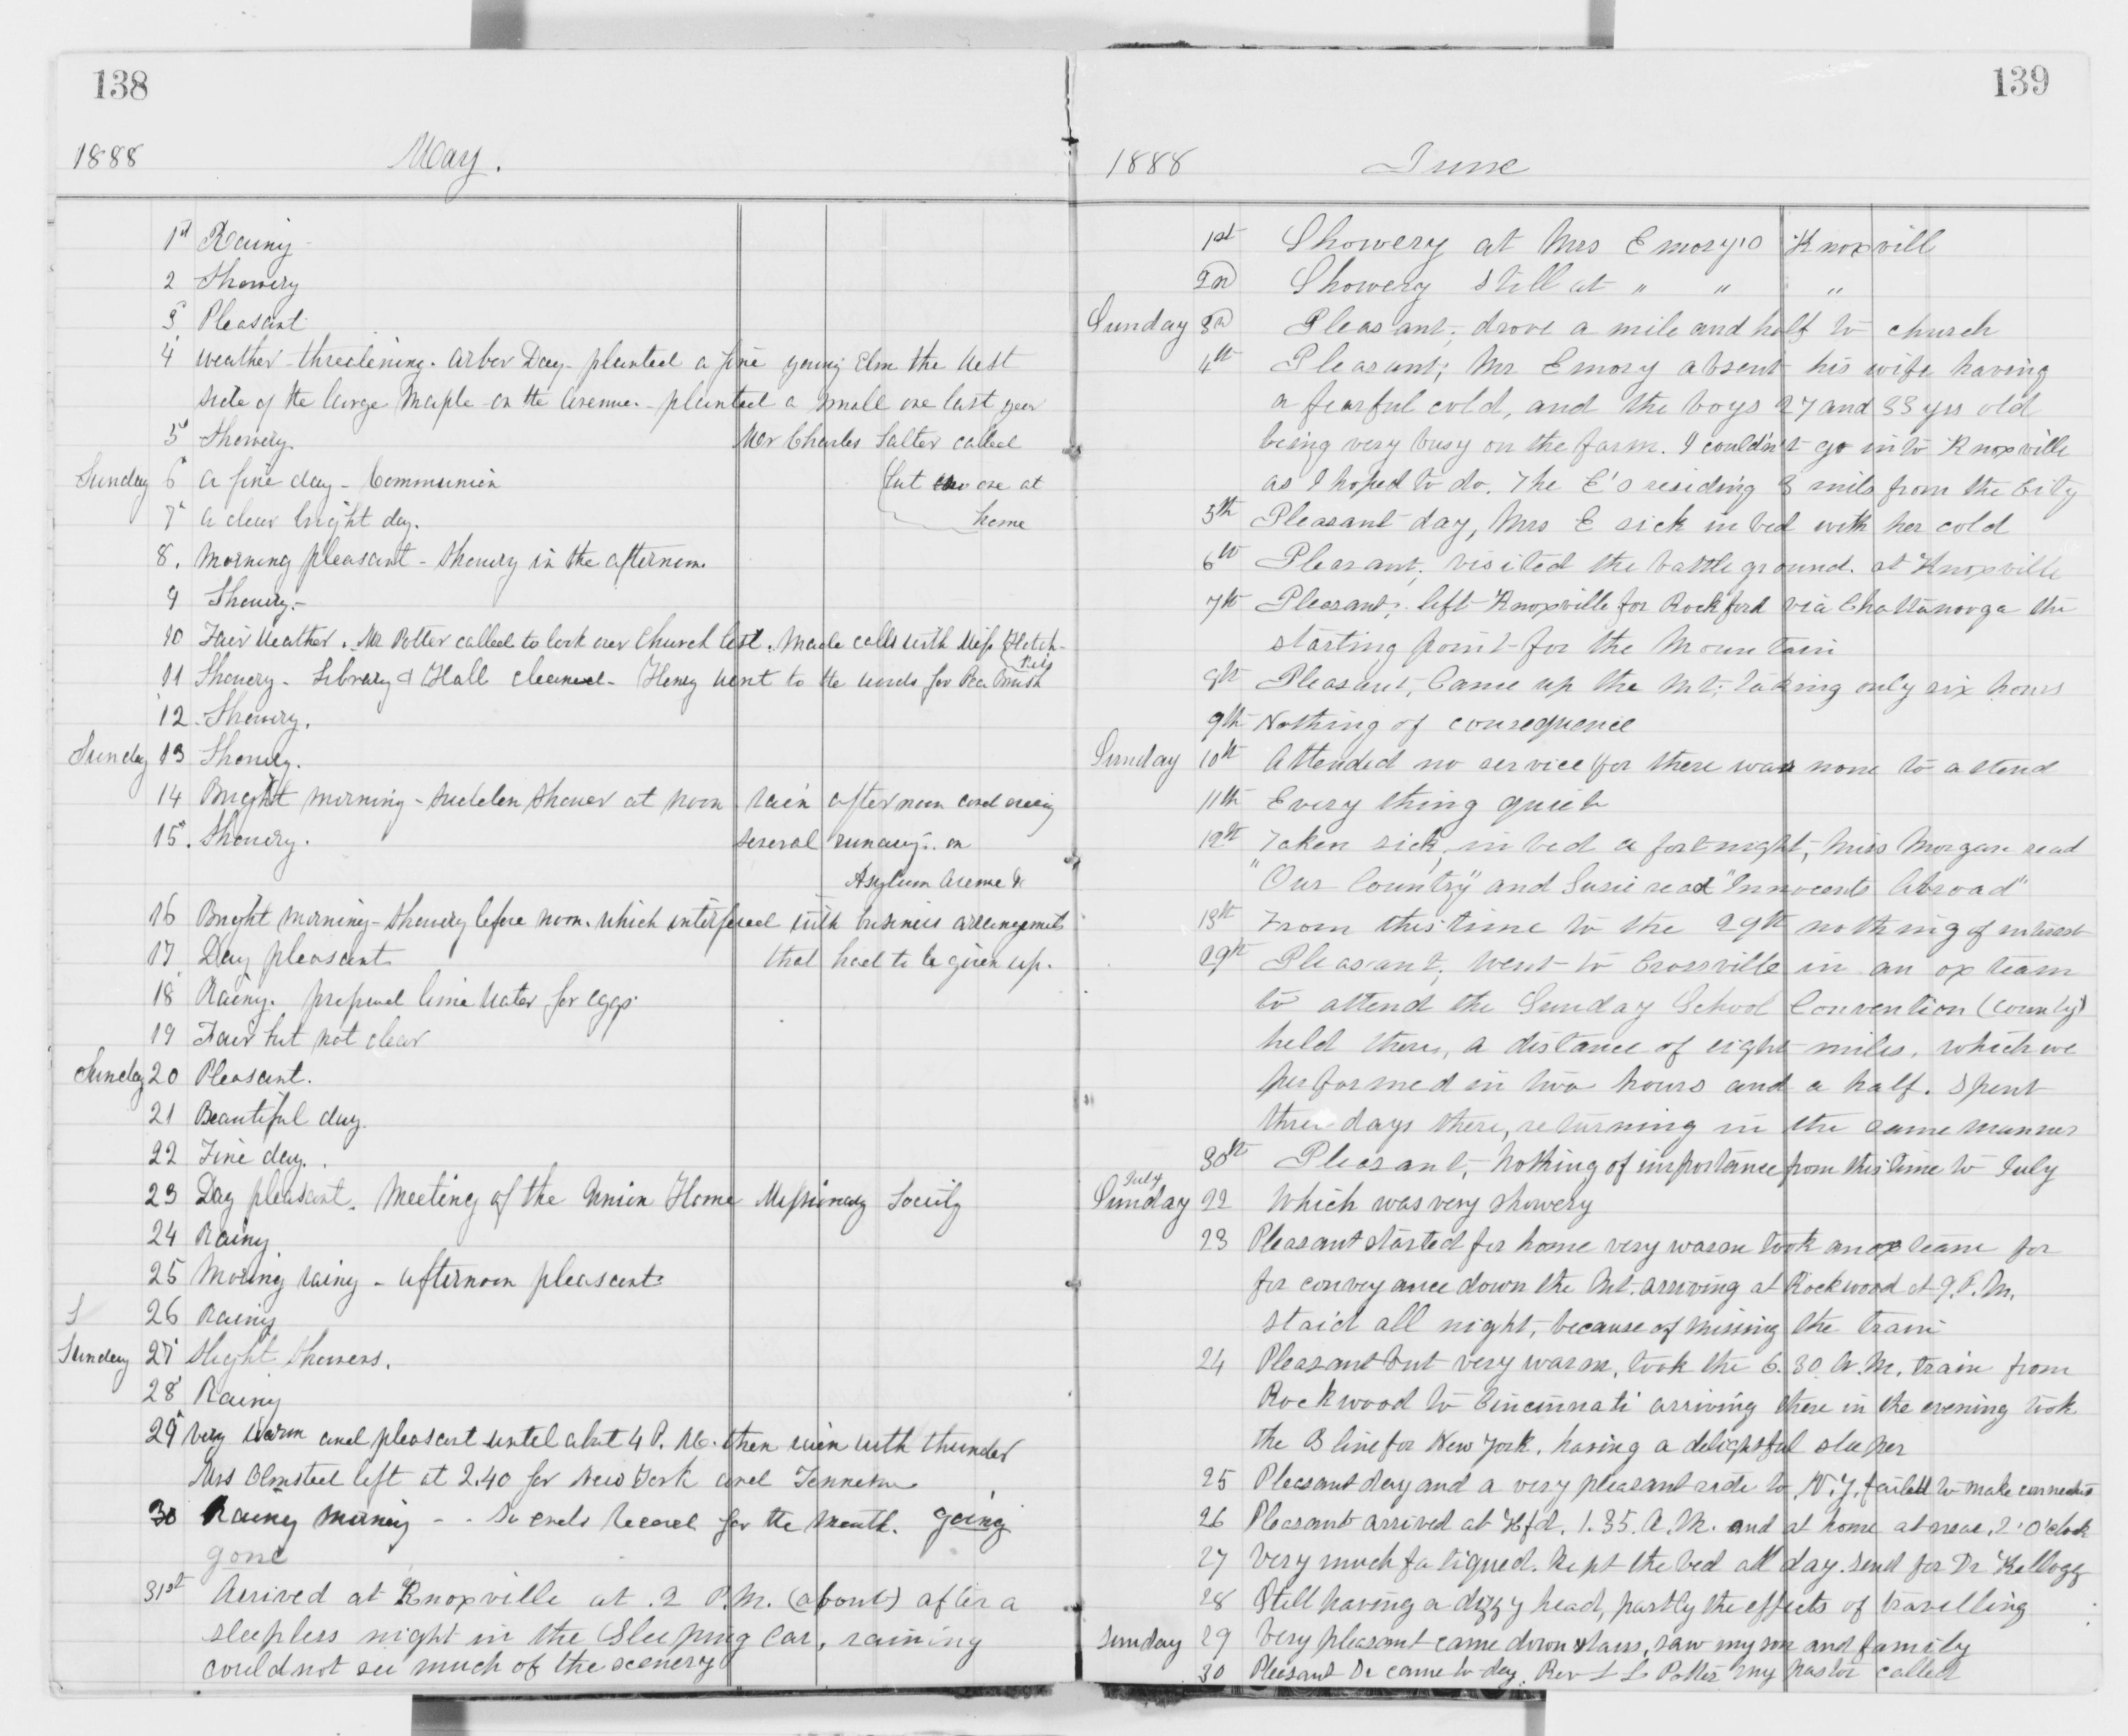 138
1888 May.
1st Rainy
2 Showery
3 Pleasant
4 weather threatening. Arbor Day - planted a fine young Elm the West
side of the large Maple on the Avenue. - planted a small one last year
5 Showery. Mr Charles Salter called
Sunday 6 A fine day - Communion (but one at
7 A clear bright day. home
8. Morning pleasant - Showery in the afternoon
9 Showery. -
10 Fair Weather. Mr Potter called to look over Church list. Made calls with Miss Hotch-
kiss
11 Showery - Library & Hall cleaned - Henry went to the woods for Pea Brush
12 Showery.
Sunday 13 Showery.
14 Bright morning - sudden shower at noon rain afternoon and evening
15. Showery. several runaways on
Asylum Avenue &
16 Bright morning - showery before noon. which interfered with business arrangements
17 Day pleasant that had to be given up.
18 Rainy. prepared lime water for eggs
19 Fair but not clear
Sunday 20 Pleasant.
21 Beautiful day.
22 Fine day.
23 Day pleasant. Meeting of the Union Home Missionary Society
24 Rainy
25 Morning rainy - afternoon pleasant
S 26 Rainy
Sunday 27 Slight showers.
28 Rainy
29 Very warm and pleasant until abut 4 P.M. then rain with thunder
Mrs Olmsted left at 2.40 for New York and Tennessee
30 Rainy morning - - So ends record for the month. going
gone
31st Arrived at Knoxville at .2 P.M. (about) after a
sleepless night in the Sleeping Car, raining
could not see much of the scenery
139
1888 June
1st Showery at Mrs Emory's Knoxvill
2n Showery still at " " "
Sunday 3d Pleasant; drove a mile and half to church
4th Pleasant; Mr Emory absent his wife having
a fearful cold, and the boys 27 and 33 yrs old
being very busy on the farm. I couldn't go in to Knoxville
as I hoped to do. The E's residing 3 mils from the City
5th Pleasant day, Mrs E sick in bed with her cold
6th Pleasant; visited the battle ground. at Knoxville
7th Pleasant; left Knoxville for Rockford via Chattanooga the
starting point for the Mountain
8th Pleasant; Came up the Mt; taking only six hours
9th Nothing of consequence
Sunday 10th Attended no service for there was none to attend
11th Every thing quiet
12th Taken sick, in bed a fortnight; Miss Morgan read
"Our Country" and Susie read "Innocents Abroad"
13th From this time to the 29th nothing of interest
29th Pleasant; went to Crossville in an ox team
to attend the Sunday School Convention (county)
held there, a distance of eight miles, which we
performed in two hours and a half. Spent
three days there, returning in the same manner
30th Pleasant; Nothing of importance from this time to July
July
Sunday 22 Which was very showery
23 Pleasant started for home very warm took an ox team for
for conveyance down the Mt. arriving at Rockwood at 9. P. M.
staid all night, because of missing the train
24 Pleasant but very warm, took the 6.30 A.M. train from
Rockwood to Cincinnati arriving there in the evening took
the B line for New York. having a delightful sleeper
25 Pleasant day and a very pleasant ride to N.Y. failed to make connection
26 Pleasant arrived at Hfd. 1.35. A. M. and at home at near 2 O'clock
27 Very much fatigued. kept the bed all day. send for Dr Kellogg
28 Still having a dizzy head, partly the effects of travelling
Sunday 29 Very pleasant came down stairs, saw my son and family
30 Pleasant Dr came to-day. Rev L L Potter my pastor called